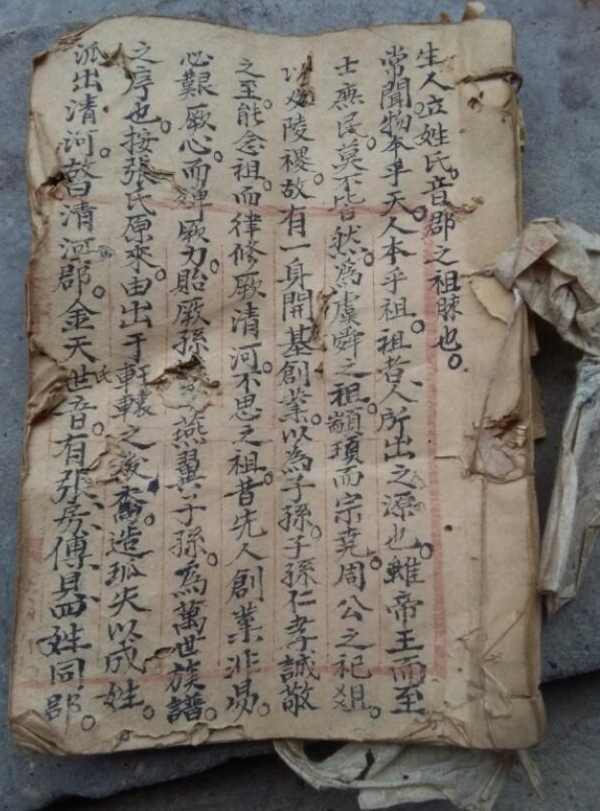 生人立姓氏。音郡之祖脉也。
常聞物本乎天。人本乎祖。祖者人所出之源也。雖帝王而至
士庶民。莫不皆然。為虞舜之祖。顓頊而宗堯。周公之祀
陵禝。故有一身開基創業。以為子孫。子孫仁孝誠敬
之至。能念祖。而律修厥清河。不思之祖。昔先人創業非易。
必艱厥心。而殫厥力。貽厥孫 燕翼子孫。為萬世族譜。
之序也。按張氏原來。由出于軒轅之後裔。造弧矢以成姓。
派出清河。暜清河郡。金天氏世音。有張房傅 姓同郡。